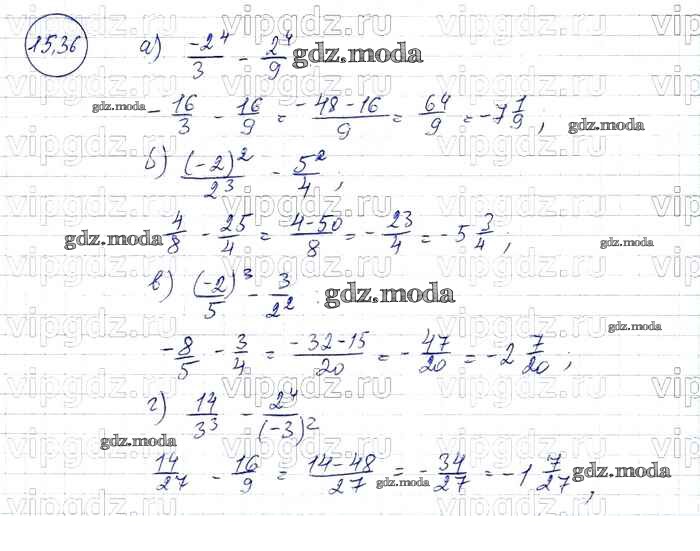 15,36 а) \frac{-2^4}{3} - \frac{2^4}{9} gdz.moda
gdz.moda -\frac{16}{3} - \frac{16}{9} = \frac{-48-16}{9} = \frac{64}{9} = -7\frac{1}{9}, gdz.moda
б) \frac{(-2)^2}{2^3} - \frac{5^2}{4};
gdz.moda \frac{4}{8} - \frac{25}{4} = \frac{4-50}{8} = -\frac{23}{4} = -5\frac{3}{4}; gdz.moda
в) \frac{(-2)^3}{5} - \frac{3}{2^2} gdz.moda
-\frac{8}{5} - \frac{3}{4} = \frac{-32-15}{20} = -\frac{47}{20} = -2\frac{7}{20}; gdz.moda
г) \frac{14}{3^3} - \frac{2^4}{(-3)^2}
gdz.moda
\frac{14}{27} - \frac{16}{9} = \frac{14-48}{27} = -\frac{34}{27} = -1\frac{7}{27}, gdz.moda gdz.moda
vipgdz.ru